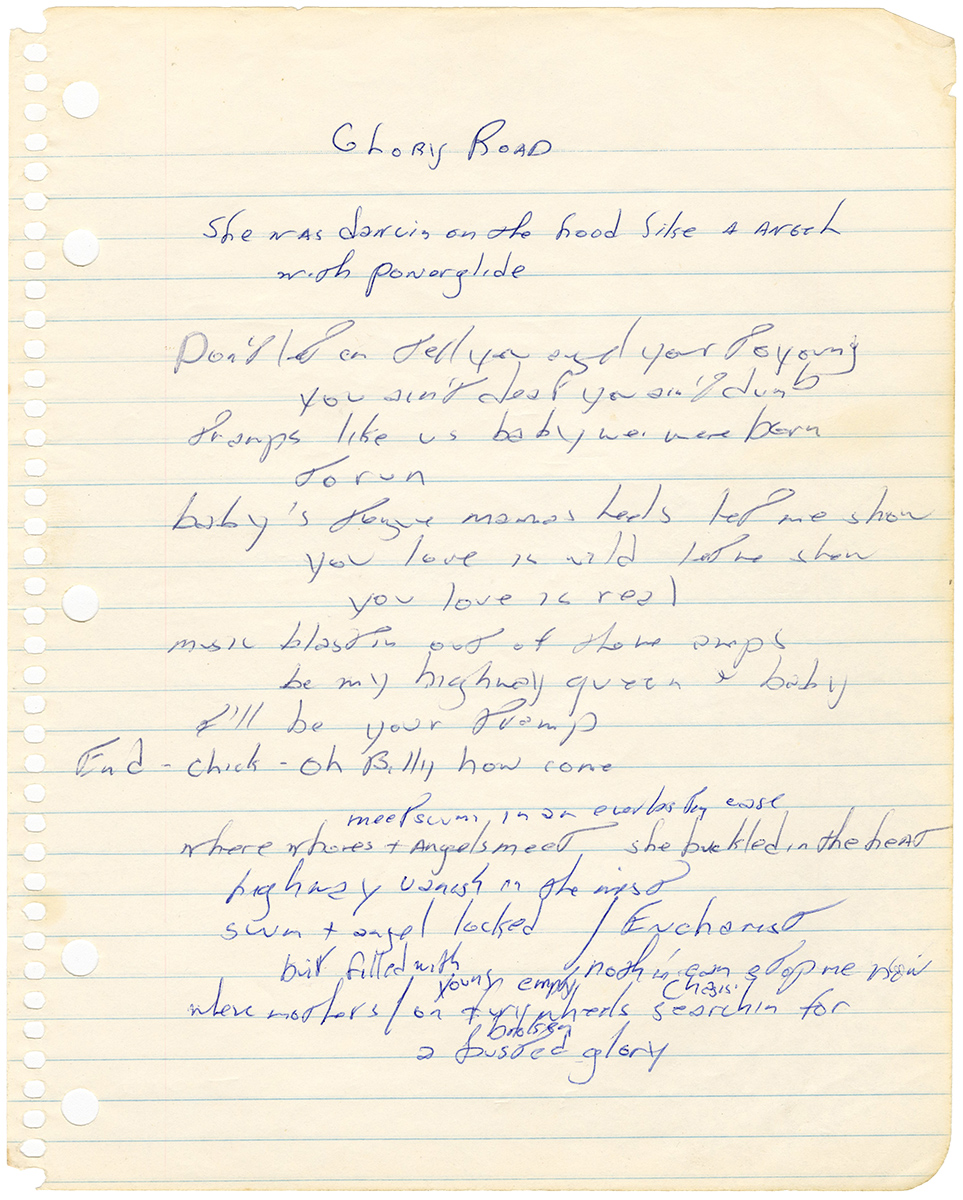 Glory Road
She was dancin on the hood like a Angel
with powerglide
Don't let em tell you angel your to young
you ain't deaf you ain't dumb
tramps like us baby we were born
to run
baby's tongue mamas heels let me show
you love is wild let me show
you love is real
music blastin out of those amps
be my highway queen + baby
I'll be your tramp
End - chick - oh Billy how come
meet scum in an everlastin ease
where whores + Angels meet she buckled in the heat
highway vanish in the mist
scum + angel locked / Eucharist
but filled with / nothin can stop me now
young empty chasin
where mothers / on fury wheels searchin for
broken
a busted glory